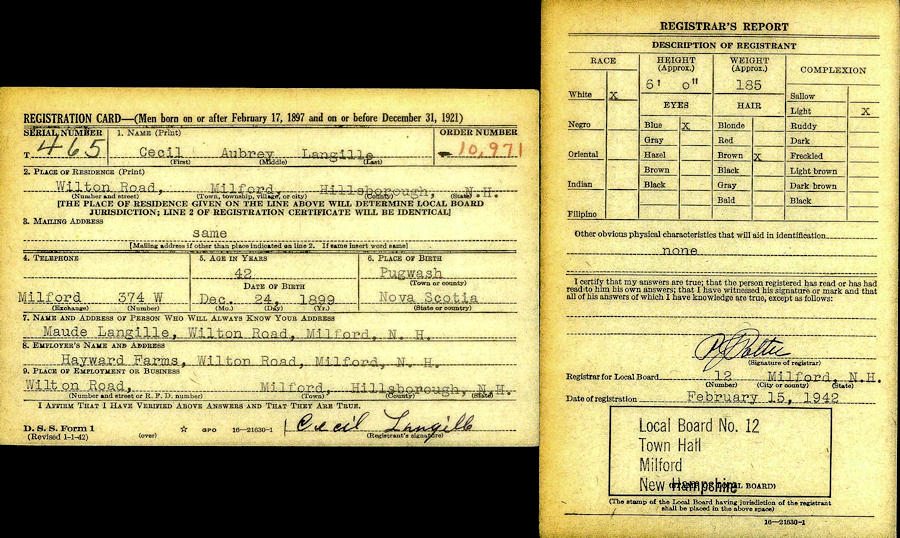 REGISTRATION CARD—(Men born on or after February 17, 1897 and on or before December 31, 1921)
SERIAL NUMBER
T 465
1. NAME (Print)
Cecil Aubrey Langille
(First) (Middle) (Last)
ORDER NUMBER
10,971
2. PLACE OF RESIDENCE (Print)
Wilton Road, Milford, Hillsborough, N.H.
(Number and street) (Town, township, village, or city) (County) (State)
[THE PLACE OF RESIDENCE GIVEN ON THE LINE ABOVE WILL DETERMINE LOCAL BOARD
JURISDICTION; LINE 2 OF REGISTRATION CERTIFICATE WILL BE IDENTICAL]
3. MAILING ADDRESS
same
[Mailing address if other than place indicated on line 2. If same insert word same]
4. TELEPHONE
Milford 374 W
(Exchange) (Number)
5. AGE IN YEARS
42
DATE OF BIRTH
Dec. 24, 1899
(Mo.) (Day) (Yr.)
6. PLACE OF BIRTH
Pugwash
(Town or county)
Nova Scotia
(State or country)
7. NAME AND ADDRESS OF PERSON WHO WILL ALWAYS KNOW YOUR ADDRESS
Maude Langille, Wilton Road, Milford, N. H.
8. EMPLOYER'S NAME AND ADDRESS
Hayward Farms, Wilton Road, Milford, N. H.
9. PLACE OF EMPLOYMENT OR BUSINESS
Wilton Road, Milford, Hillsborough, N.H.
(Number and street or R. F. D. number) (Town) (County) (State)
I AFFIRM THAT I HAVE VERIFIED ABOVE ANSWERS AND THAT THEY ARE TRUE.
D. S. S. Form 1
(Revised 1-1-42) (over) ☆ GPO 16—21630-1
Cecil Langille
(Registrant's signature)
REGISTRAR'S REPORT
DESCRIPTION OF REGISTRANT
RACE
White X
Negro
Oriental
Indian
Filipino
HEIGHT
(Approx.)
6' 0"
WEIGHT
(Approx.)
185
EYES
Blue X
Gray
Hazel
Brown
Black
HAIR
Blonde
Red
Brown X
Black
Gray
Bald
COMPLEXION
Sallow
Light X
Ruddy
Dark
Freckled
Light brown
Dark brown
Black
Other obvious physical characteristics that will aid in identification
none
I certify that my answers are true; that the person registered has read or has had
read to him his own answers; that I have witnessed his signature or mark and that
all of his answers of which I have knowledge are true, except as follows:
(Signature of registrar)
Registrar for Local Board 12 Milford, N.H.
(Number) (City or county) (State)
Date of registration February 15, 1942
Local Board No. 12
Town Hall
Milford
New Hampshire
(STAMP OF LOCAL BOARD)
(The stamp of the Local Board having jurisdiction of the registrant
shall be placed in the above space)
16—21630-1